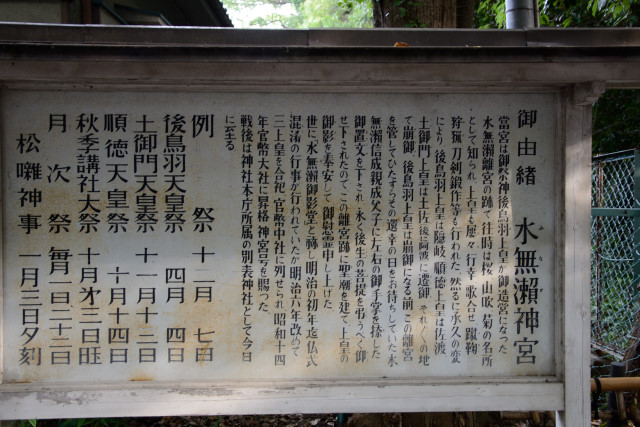 御由緒 水無瀬神宮
當宮は御祭神後鳥羽上皇が御造営になった
水無瀬離宮の跡で往時は桜山吹 菊の名所
として知られ 上皇も屡々 行幸 歌合せ 蹴鞠
狩猟 刀剣鍛作等も行われた 然るに承久の変
により 後鳥羽上皇は隠岐 順徳上皇は佐渡
土御門上皇は土佐後に阿波 に遷御 それぞれの地
で崩御 後鳥羽上皇は崩御になる前この離宮
を管してひたすらその還幸の日をお待ちしていた水
無瀬信成親成父子に左右の御手掌を捺した
御置文を下され永く後生の菩提を弔うべく御
せ下されたのでこの離宮跡に聖廟を建て上皇の
御影を奉安して御慰霊申し上げた
世に水無瀬御影堂と称し明治の初年迄仏式
混淆の行事が行われていたが明治六年改めて
三上皇を合祀 官幣中社に列せられ昭和十四
年官幣大社に昇格 神宮号を賜った
戦後は神社本庁所属の別表神社として今日
に至る
例祭 十二月 七日
後鳥羽天皇祭 四月 四日
土御門天皇祭 十一月十二日
順徳天皇祭 十月十四日
秋季講社大祭 十月第三日旺
月次祭 毎月一日二十二日
松囃神事 一月三日夕刻